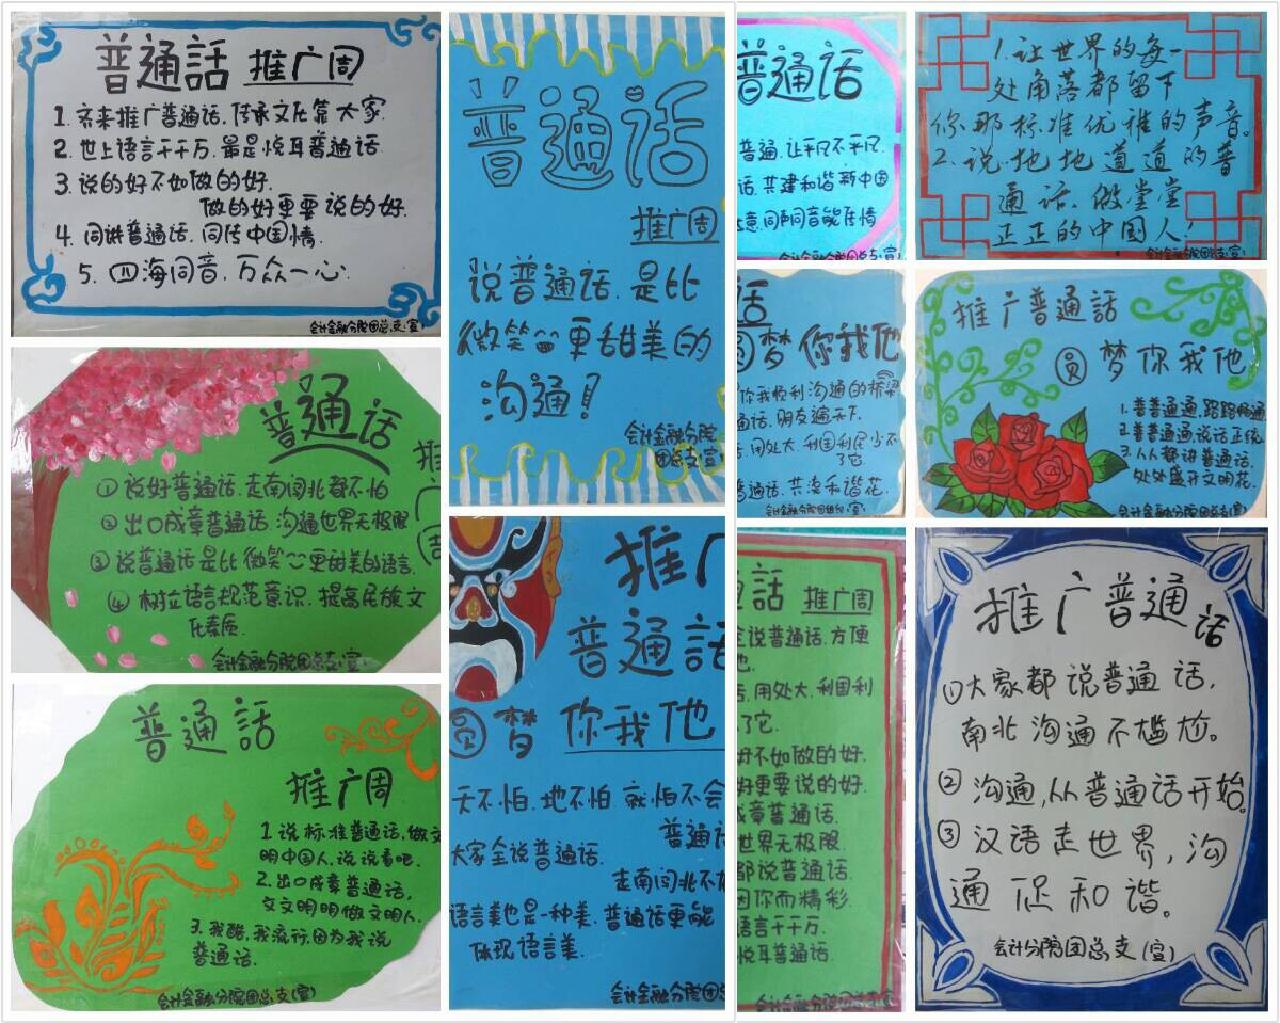 普通話 推广周
1. 齐来推广普通话, 传承文化靠大家.
2. 世上语言千千万, 最是悦耳普通话.
3. 说的好不如做的好.
做的好更要说的好.
4. 同讲普通话, 同传中国情.
5. 四海同音, 万众一心.
会计金融分院团总支(宣)
普通话
推广周
说普通话, 是比
微笑更甜美的
沟通!
会计金融分院
团总支(宣
普通话
普通, 让平凡不平凡.
话, 共建和谐新中国
意, 同声同音能传情
会计金融分院团总支(宣)
1. 让世界的每一
处角落都留下
你那标准优雅的声音。
2. 说地地道道的普
通话, 做堂堂
正正的中国人!
会计金融分院团总支(宣)
普通话
推
广
周
① 说好普通话, 走南闯北都不怕
② 出口成章普通话 沟通世界无极限
③ 说普通话是比微笑更甜美的语言.
④ 树立语言规范意识, 提高民族文
化素质.
会计金融分院团总支(宣)
话
圆梦 你我他
你我顺利沟通的桥梁
通话, 朋友遍天下.
, 用处大, 利国利民少不
了它.
普通话, 共浇和谐花.
会计金融分院团总支(宣)
推广普通話
圆 梦你我他
1. 普普通通, 路路畅通
2. 普普通通说话正统
3. 人人都讲普通话,
处处盛开文明花.
会计金融分院团总支(宣)
普通話
推广周
1. 说标准普通话, 做文
明中国人, 说说看吧.
2. 出口成章普通话,
文文明明做文明人.
3. 我酷, 我流行, 因为我说
普通话.
会计金融分院团总支(宣)
推广
普通話
圆梦 你我他
天不怕, 地不怕 就怕不会
普通话
大家全说普通话.
走南闯北不怕
语言美也是一种美. 普通话更能
体现语言美.
会计金融分院团总
話 推广周
全说普通话, 方便
他.
话, 用处大, 利国利
了它.
好不如做的好.
好更要说的好.
成章普通话.
世界无极限.
都说普通话.
因你而精彩.
语言千千万.
悦耳普通话.
会计金融分院团总支(宣
推广普通话
① 大家都说普通话,
南北沟通不尴尬。
② 沟通, 从普通话开始。
③ 汉语走世界, 沟
通促和谐。
会计分院团总支(宣)